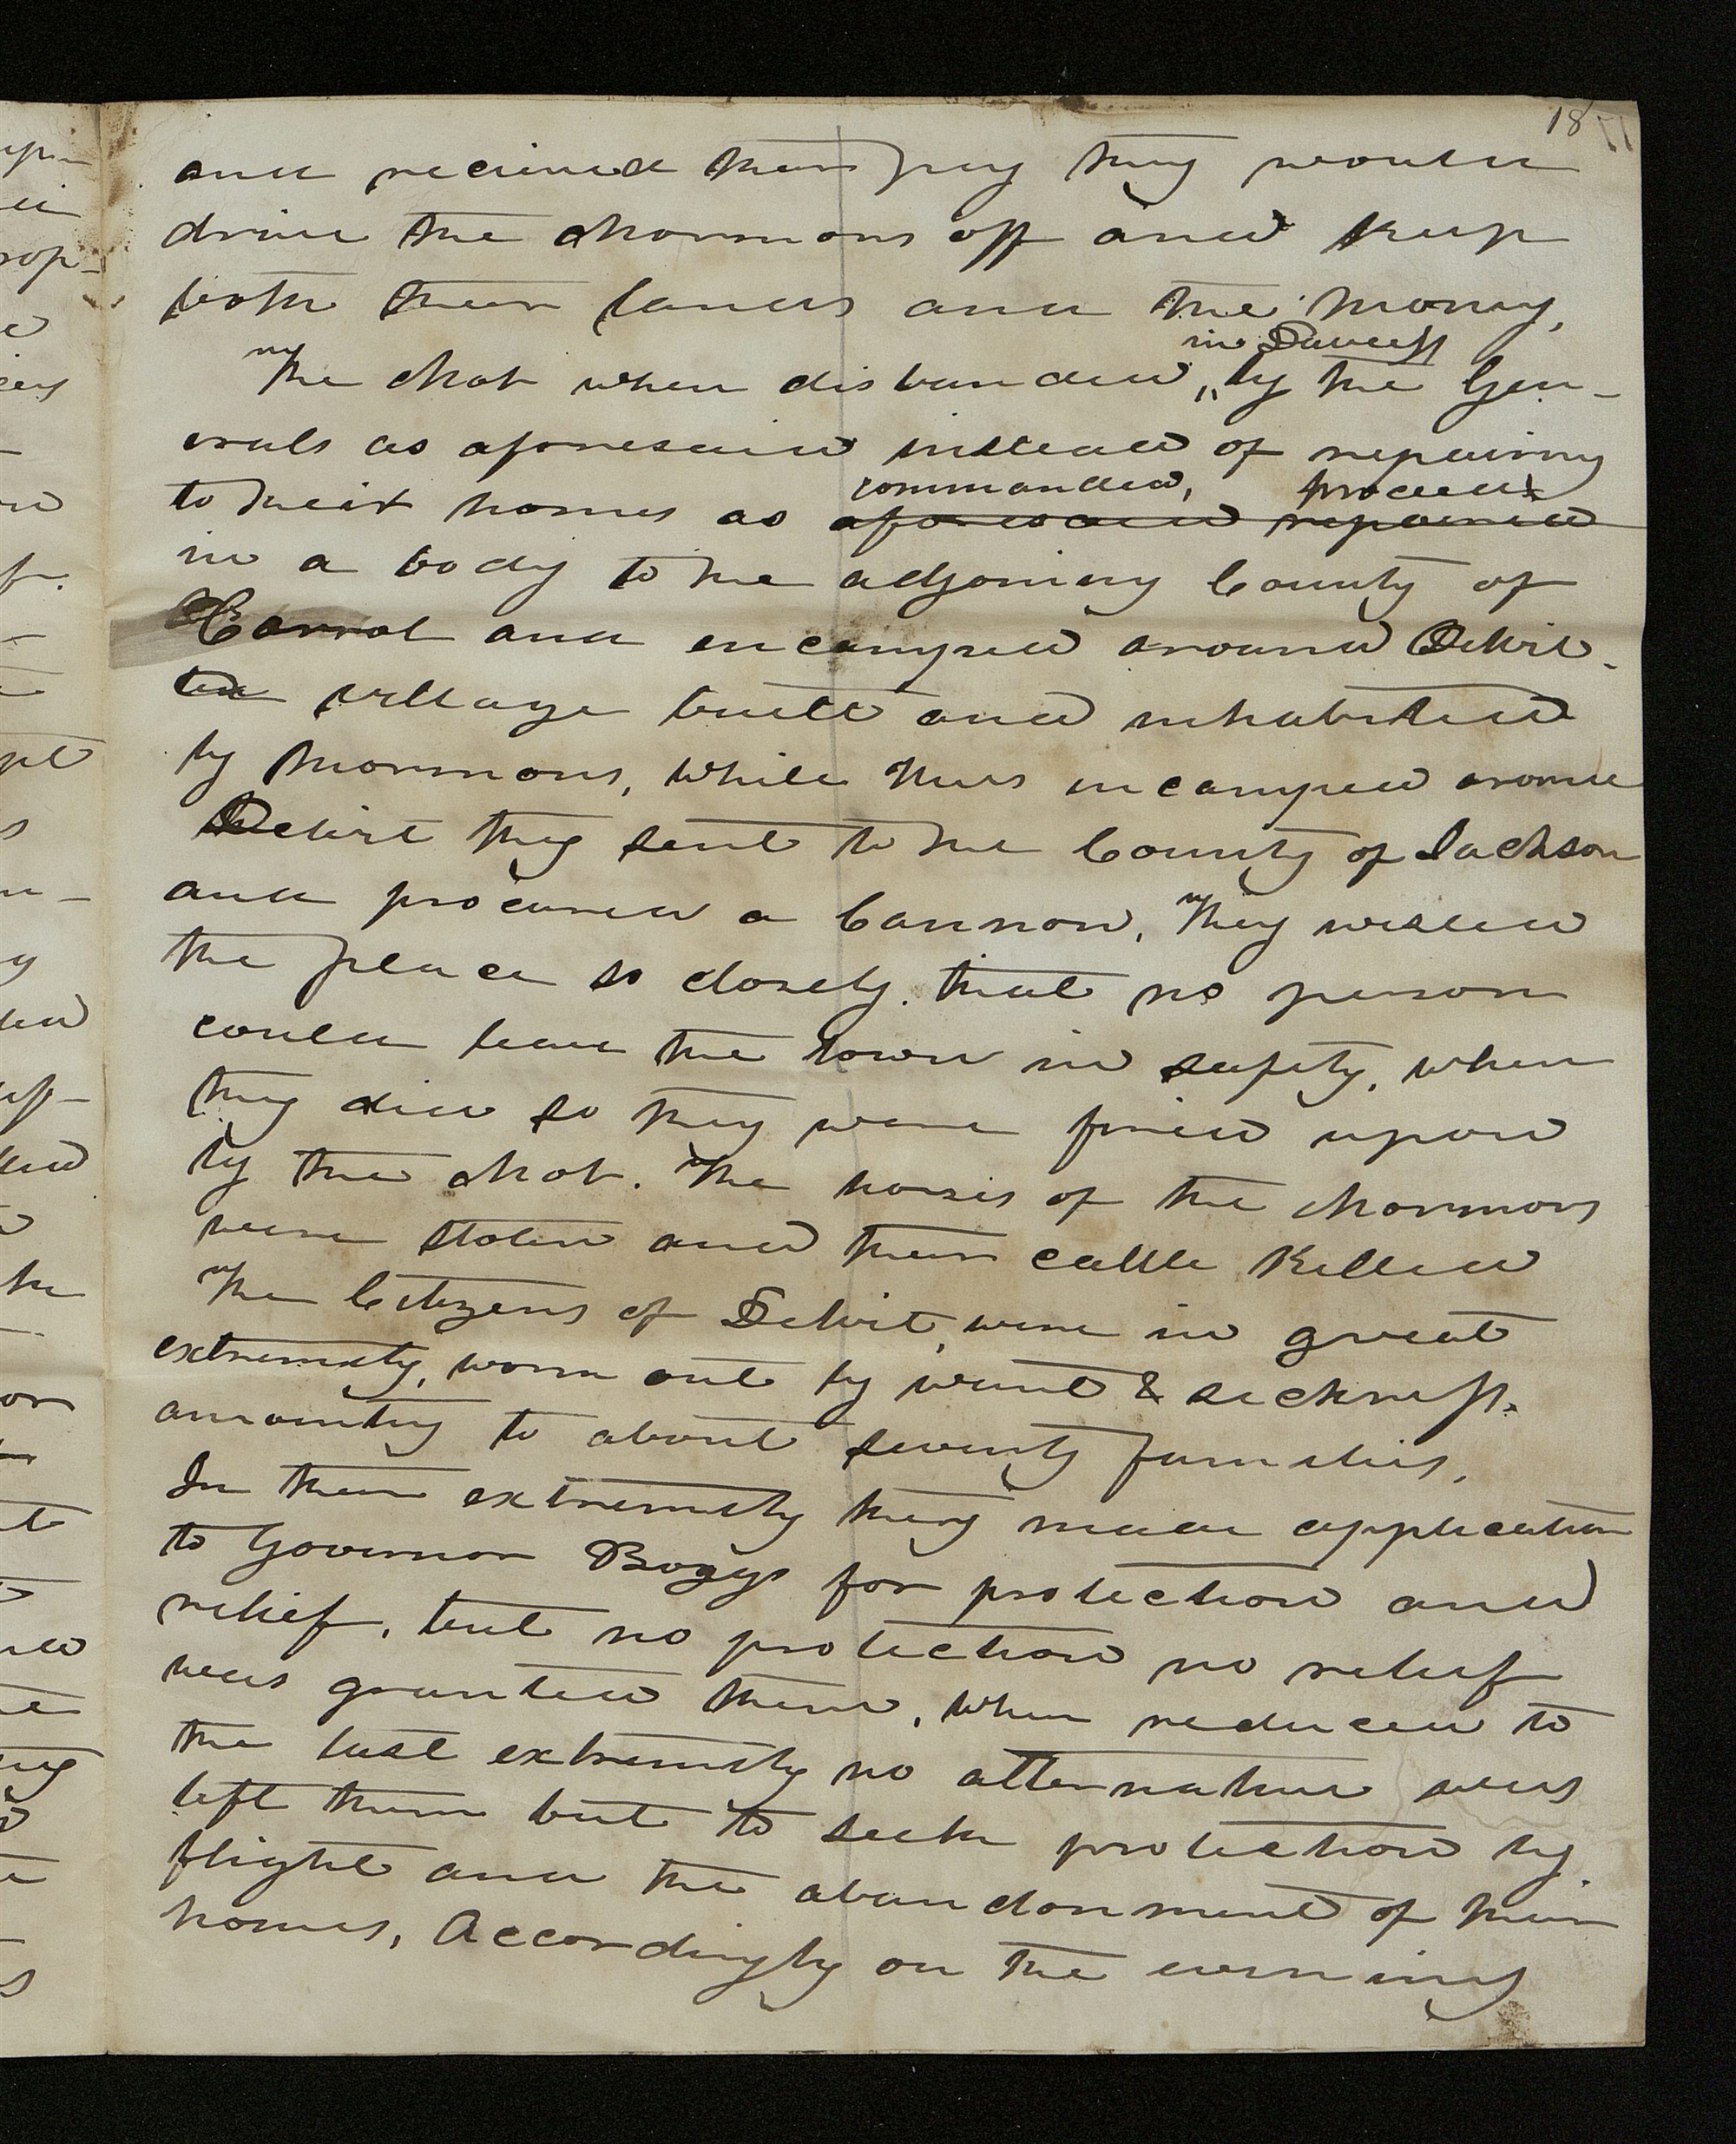 18
and recieved their pay they would
drive the Mormons off and keep
both their lands and the money,
The Mob when disbanded, in Daviess by the Gen-
erals as aforesaid instead of repairing
to their homes as aforesaid repaired commanded, proceed
in a body to the adjoining County of
Carrol and encamped around Dewit.
a village built and inhabited
by Mormons, while thus encamped around
Dewit they sent to the County of Jackson
and procured a Cannon, They invested
the place so closely that no person
could leave the town in safety, when
they did so they were fired upon
by the Mob. The horses of the Mormons
were stolen and their cattle killed
The Citizens of Dewit, were in great
extremity, worn out by want & sickness.
amounting to about seventy families,
In their extremity they made application
to Governor Boggs for protection and
relief, but no protection no relief
was granted them, when reduced to
the last extremity no alternative was
left them but to seek protection by
flight and the abandonment of their
homes, Accordingly on the evening